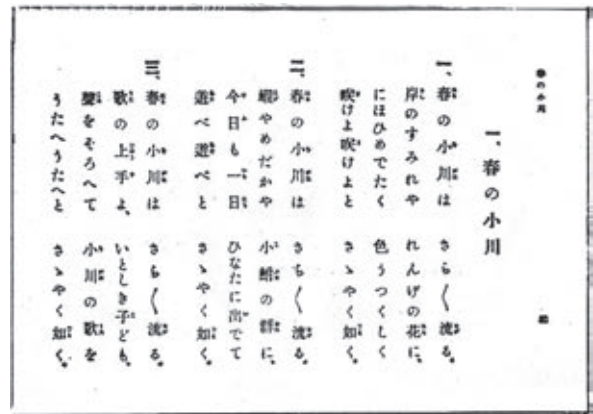 春の小川
一、春の小川
一、春の小川は　さら〱流る。
岸のすみれや　れんげの花に、
にほひめでたく　色うつくしく
咲けよ咲けよと　さゝやく如く。
二、春の小川は　さら〱流る。
蝦やめだかや　小鮒の群に、
今日も一日　ひなたに出でて
遊べ遊べと　さゝやく如く。
三、春の小川は　さら〱流る。
歌の上手よ、　いとしき子ども、
聲をそろへて　小川の歌を
うたへうたへと　さゝやく如く。